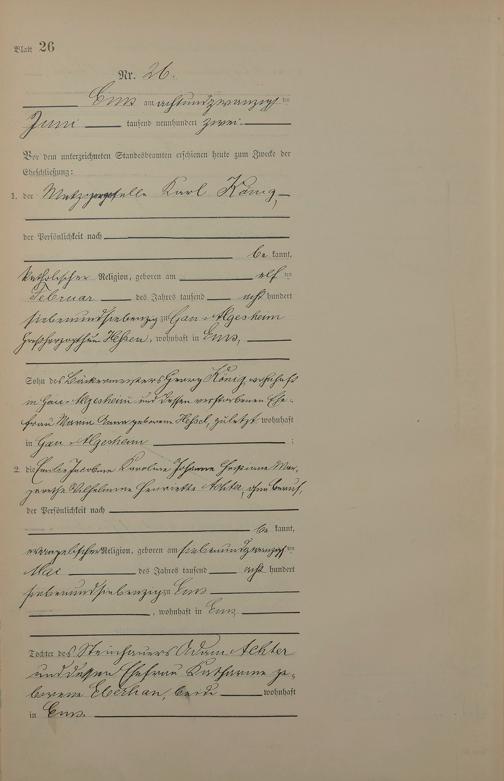 Blatt 26
Nr. 26.
Ems am achtundzwanzigsten
Juni tausend neunhundert zwei
Vor dem unterzeichneten Standesbeamten erschienen heute zum Zwecke der
Eheschließung:
1. der Metzgergeselle Karl König,
der Persönlichkeit nach
be kannt,
katholischer Religion, geboren am elf ten
Februar des Jahres tausend acht hundert
siebenundsiebenzig zu Gau-Algesheim
Großherzogthum Hessen, wohnhaft in Ems,
Sohn des Bäckermeisters Georg König, wohnhaft
in Gau-Algesheim und dessen verstorbenen Ehe-
frau Maria Anna geborenen zuletzt wohnhaft
in Gau-Algesheim ;
2. die Emilie Jacobine Karoline Johanna Mar-
garethe Wilhelmine Henriette Achter, ohne Beruf,
der Persönlichkeit nach
be kannt,
evangelischer Religion, geboren am siebenundzwanzigsten
Mai des Jahres tausend acht hundert
siebenundsiebenzig zu Ems
, wohnhaft in Ems
Tochter des Steinhauers Adam Achter
und dessen Ehefrau Katharine ge-
borene beide wohnhaft
in Ems